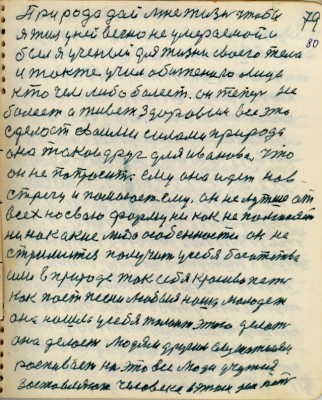 Природа дай мне жизнь чтобы 79
я жил у ней вечно не умераемой и 80
был я ученый для жизни своего тела
и также учил обиженого лица
кто чем либо болеет. он теперь не
болеет а живет здоровым все это
сделает своими силами природа
она такой друг для иванова, что
он не попросит ему она идет нов
стречу и помогает ему. он не лутше от
всех но свою форму ни как не поменяет
ни на какие либо особенности он не
стремится получить у себя богатства
или в природе так себя красиво петь
как поет песни любимая наша молодеж
она нашла у себя талант этого делать
она делает людям другим слушателям
роспевает на это все люди учутся
заставляют человека в этом петь